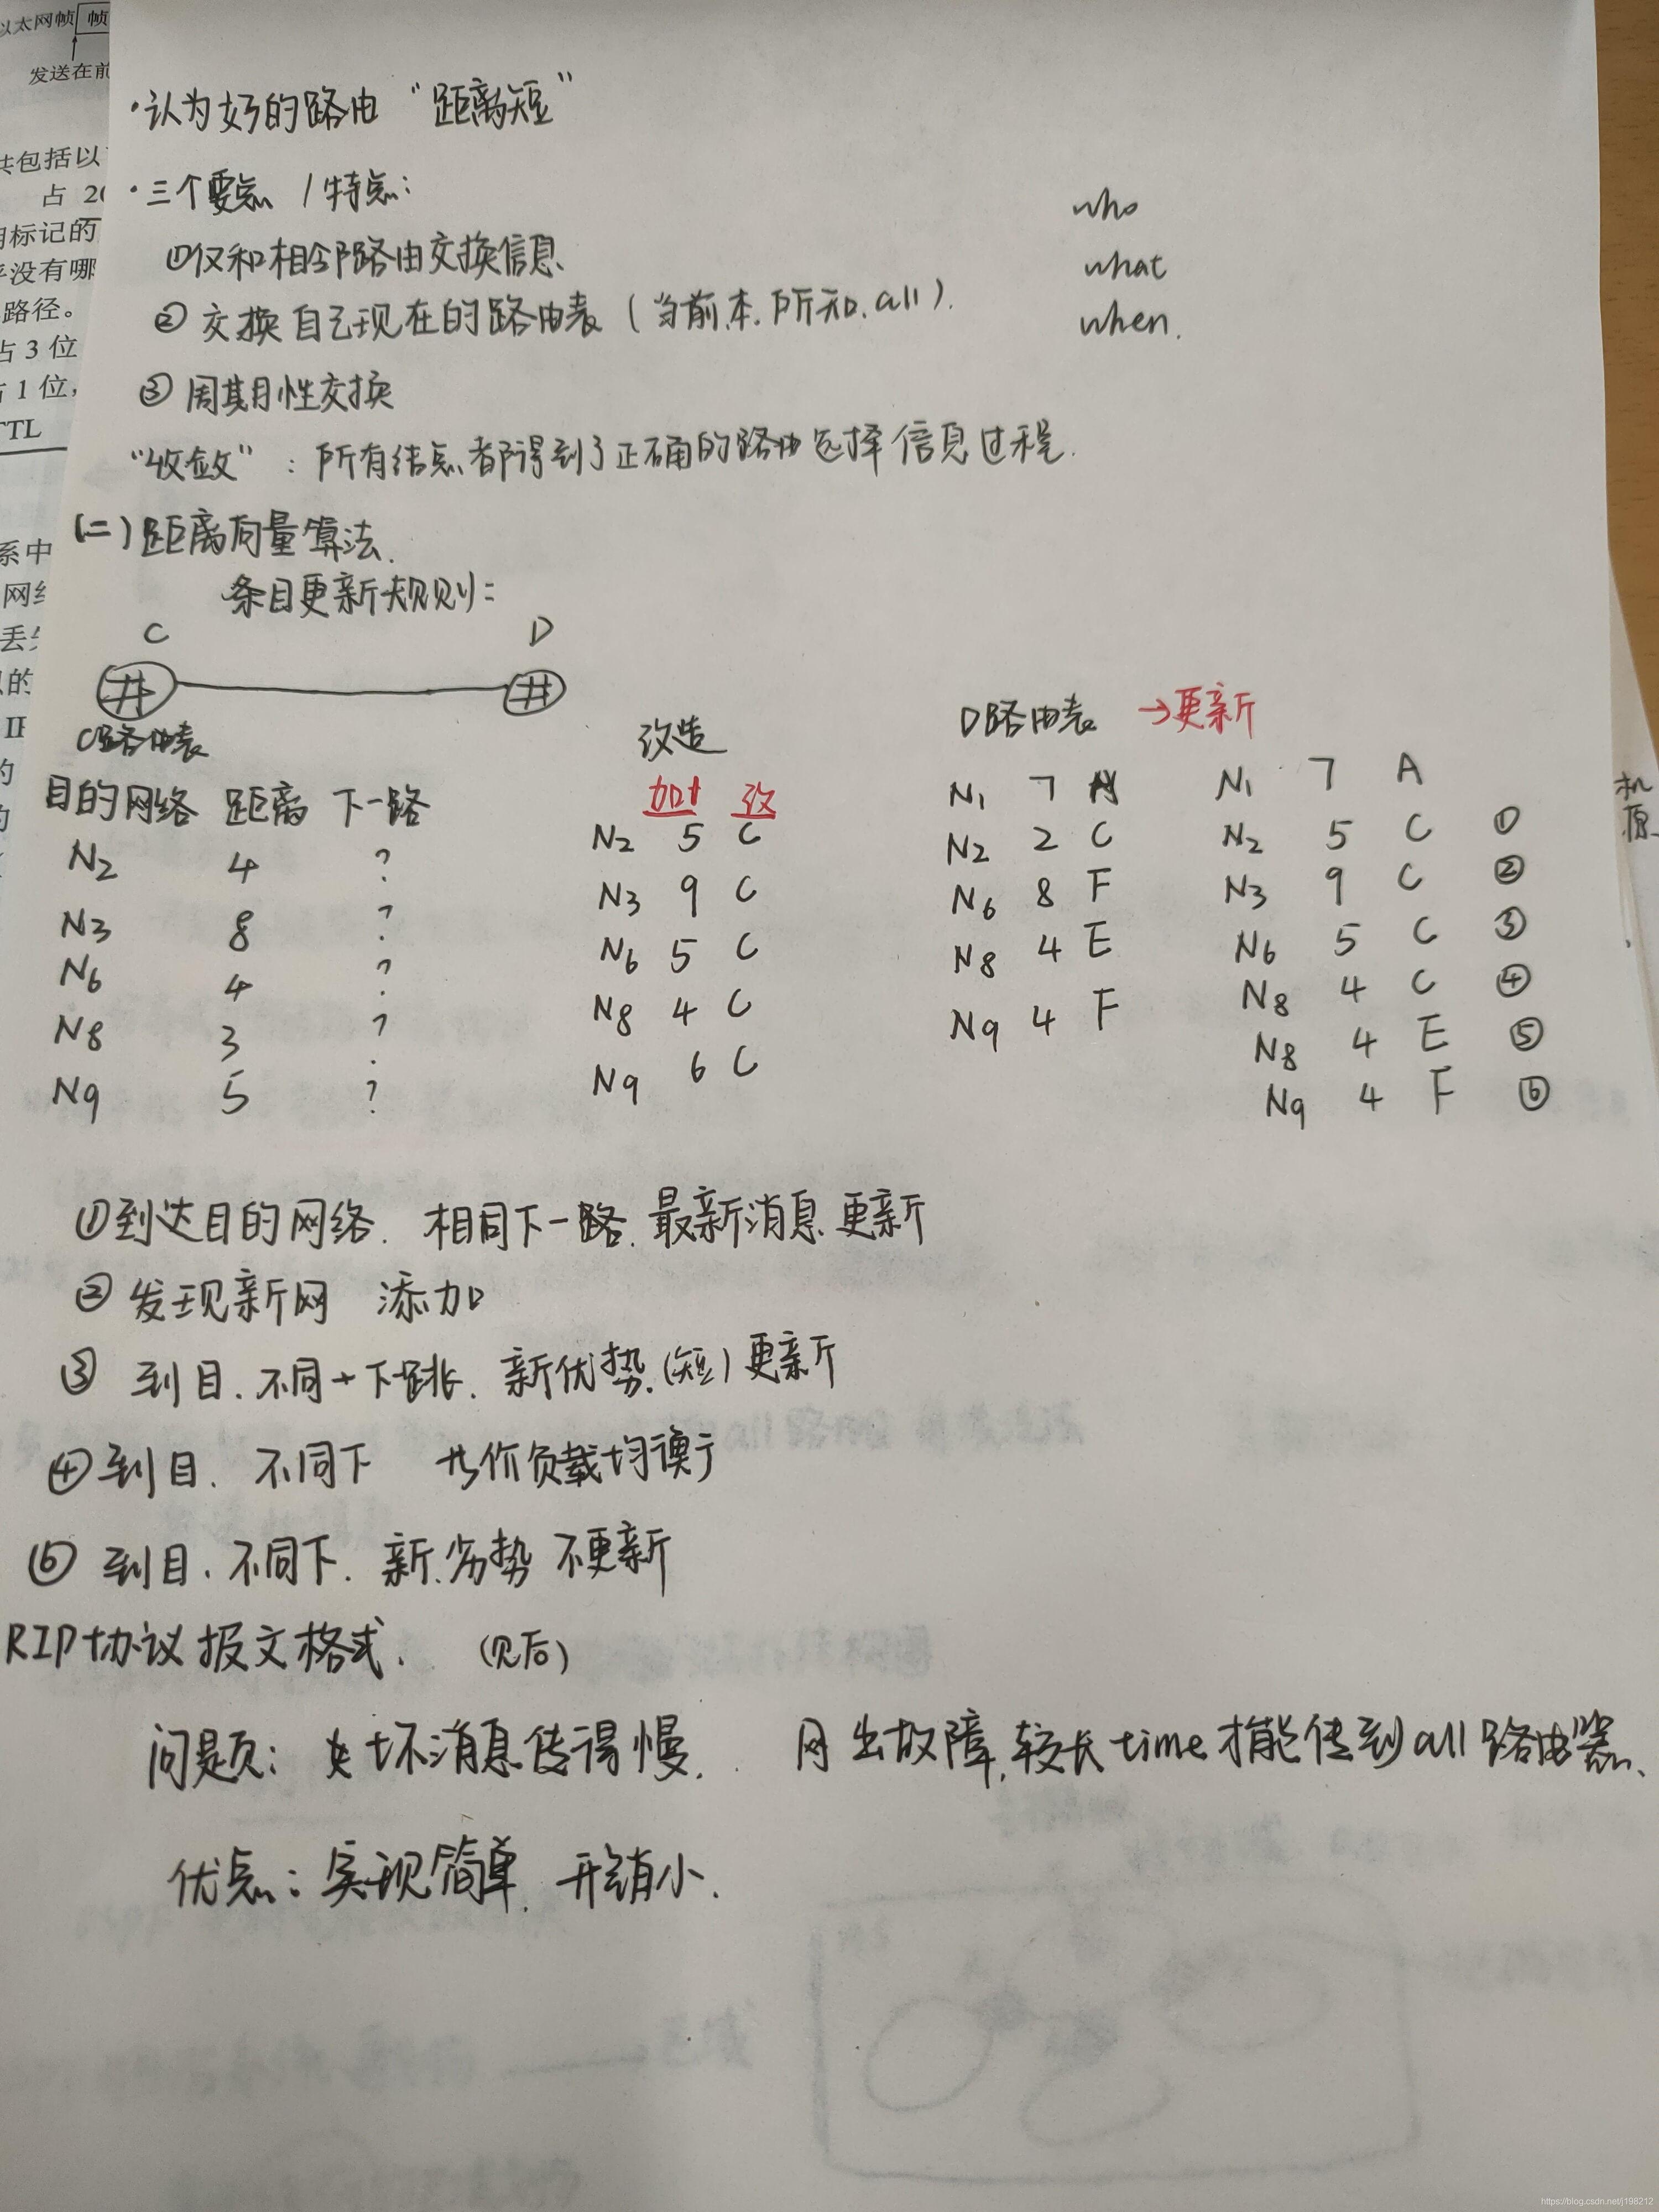 以太网帧 帧
发送在前
共包括以
占 20
用标记的
乎没有哪
路径。
占 3 位
占 1 位,
TTL
系中
网络
的
IP
的
·认为好的路由 “距离短”
·三个要点 / 特点:
①仅和相邻路由交换信息 who
② 交换自己现在的路由表 (当前.本.所知.all). what
③ 周期性交换 when.
“收敛” : 所有结点都得到了正确的路由选择信息过程.
(二) 距离向量算法.
条目更新规则:
C D
C路由表 改造 D路由表 →更新
目的网络 距离 下一路 加1 改
N2 4 ? N2 5 C N1 7 A N1 7 A
N3 8 ? N3 9 C N2 2 C N2 5 C ①
N6 4 ? N6 5 C N6 8 F N3 9 C ②
N8 3 ? N8 4 C N8 4 E N6 5 C ③
N9 5 ? N9 6 C N9 4 F N8 4 C ④
N8 4 E ⑤
N9 4 F ⑥
机
原
①到达目的网络. 相同下一路. 最新消息.更新
② 发现新网 添加
③ 到目.不同一下跳. 新优势.(短) 更新
④到目. 不同下 等价负载均衡
⑥ 到目.不同下. 新.劣势 不更新
RIP协议报文格式. (见后)
问题: 坏消息传得慢. 网出故障,较长time才能传到all路由器.
优点: 实现简单. 开销小.
https://blog.csdn.net/j198212